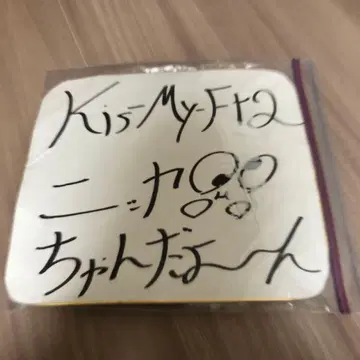 Kis-My-Ft2
ニカ
ちゃんだよ〜ん